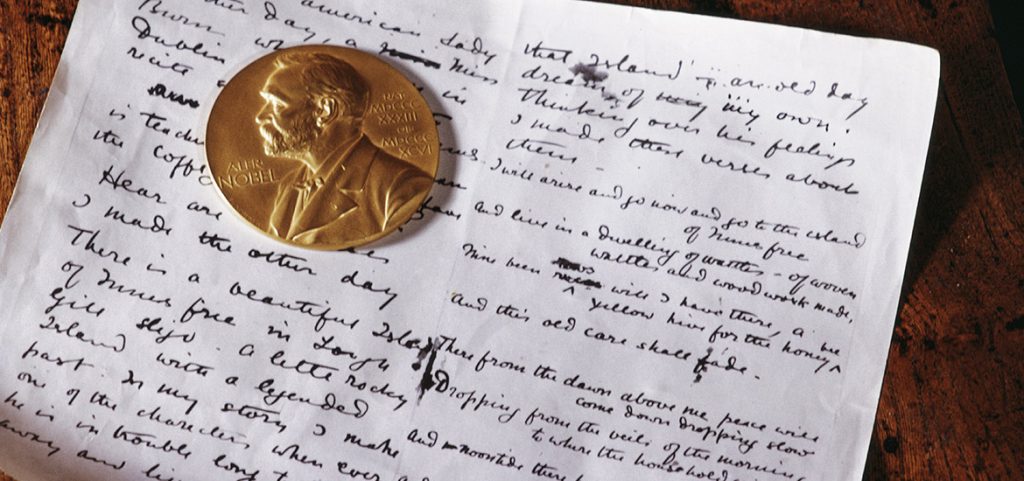 american Lady
day, a Miss
Burn
Dublin in
recite
is teach
the Coffe
Hear are
I made the other day
There is a beautiful Isla
of Innis free in Lough
Gill Sligo. A little rocky
Island with a legended
past. In my story I make
one of the charicters when ever
he is in trouble long t
away and li
that Island - an old day
dream of my own.
Thinking over his feelings
I made these verses about
them -
I will arise and go now and go to the island
of Innis free
And live in a dwelling of wattles - of woven
wattles and wood work made,
Nine bean rows will I have there, a
yellow hive for the honey bee
And this old care shall fade.
There from the dawn above me peace will
come down dropping slow
Dropping from the veils of the morning
to where the household
And noontide there
ALFR
NOBEL
NAT
MDCCC
XXXIII
OB
MDCCC
XCVI